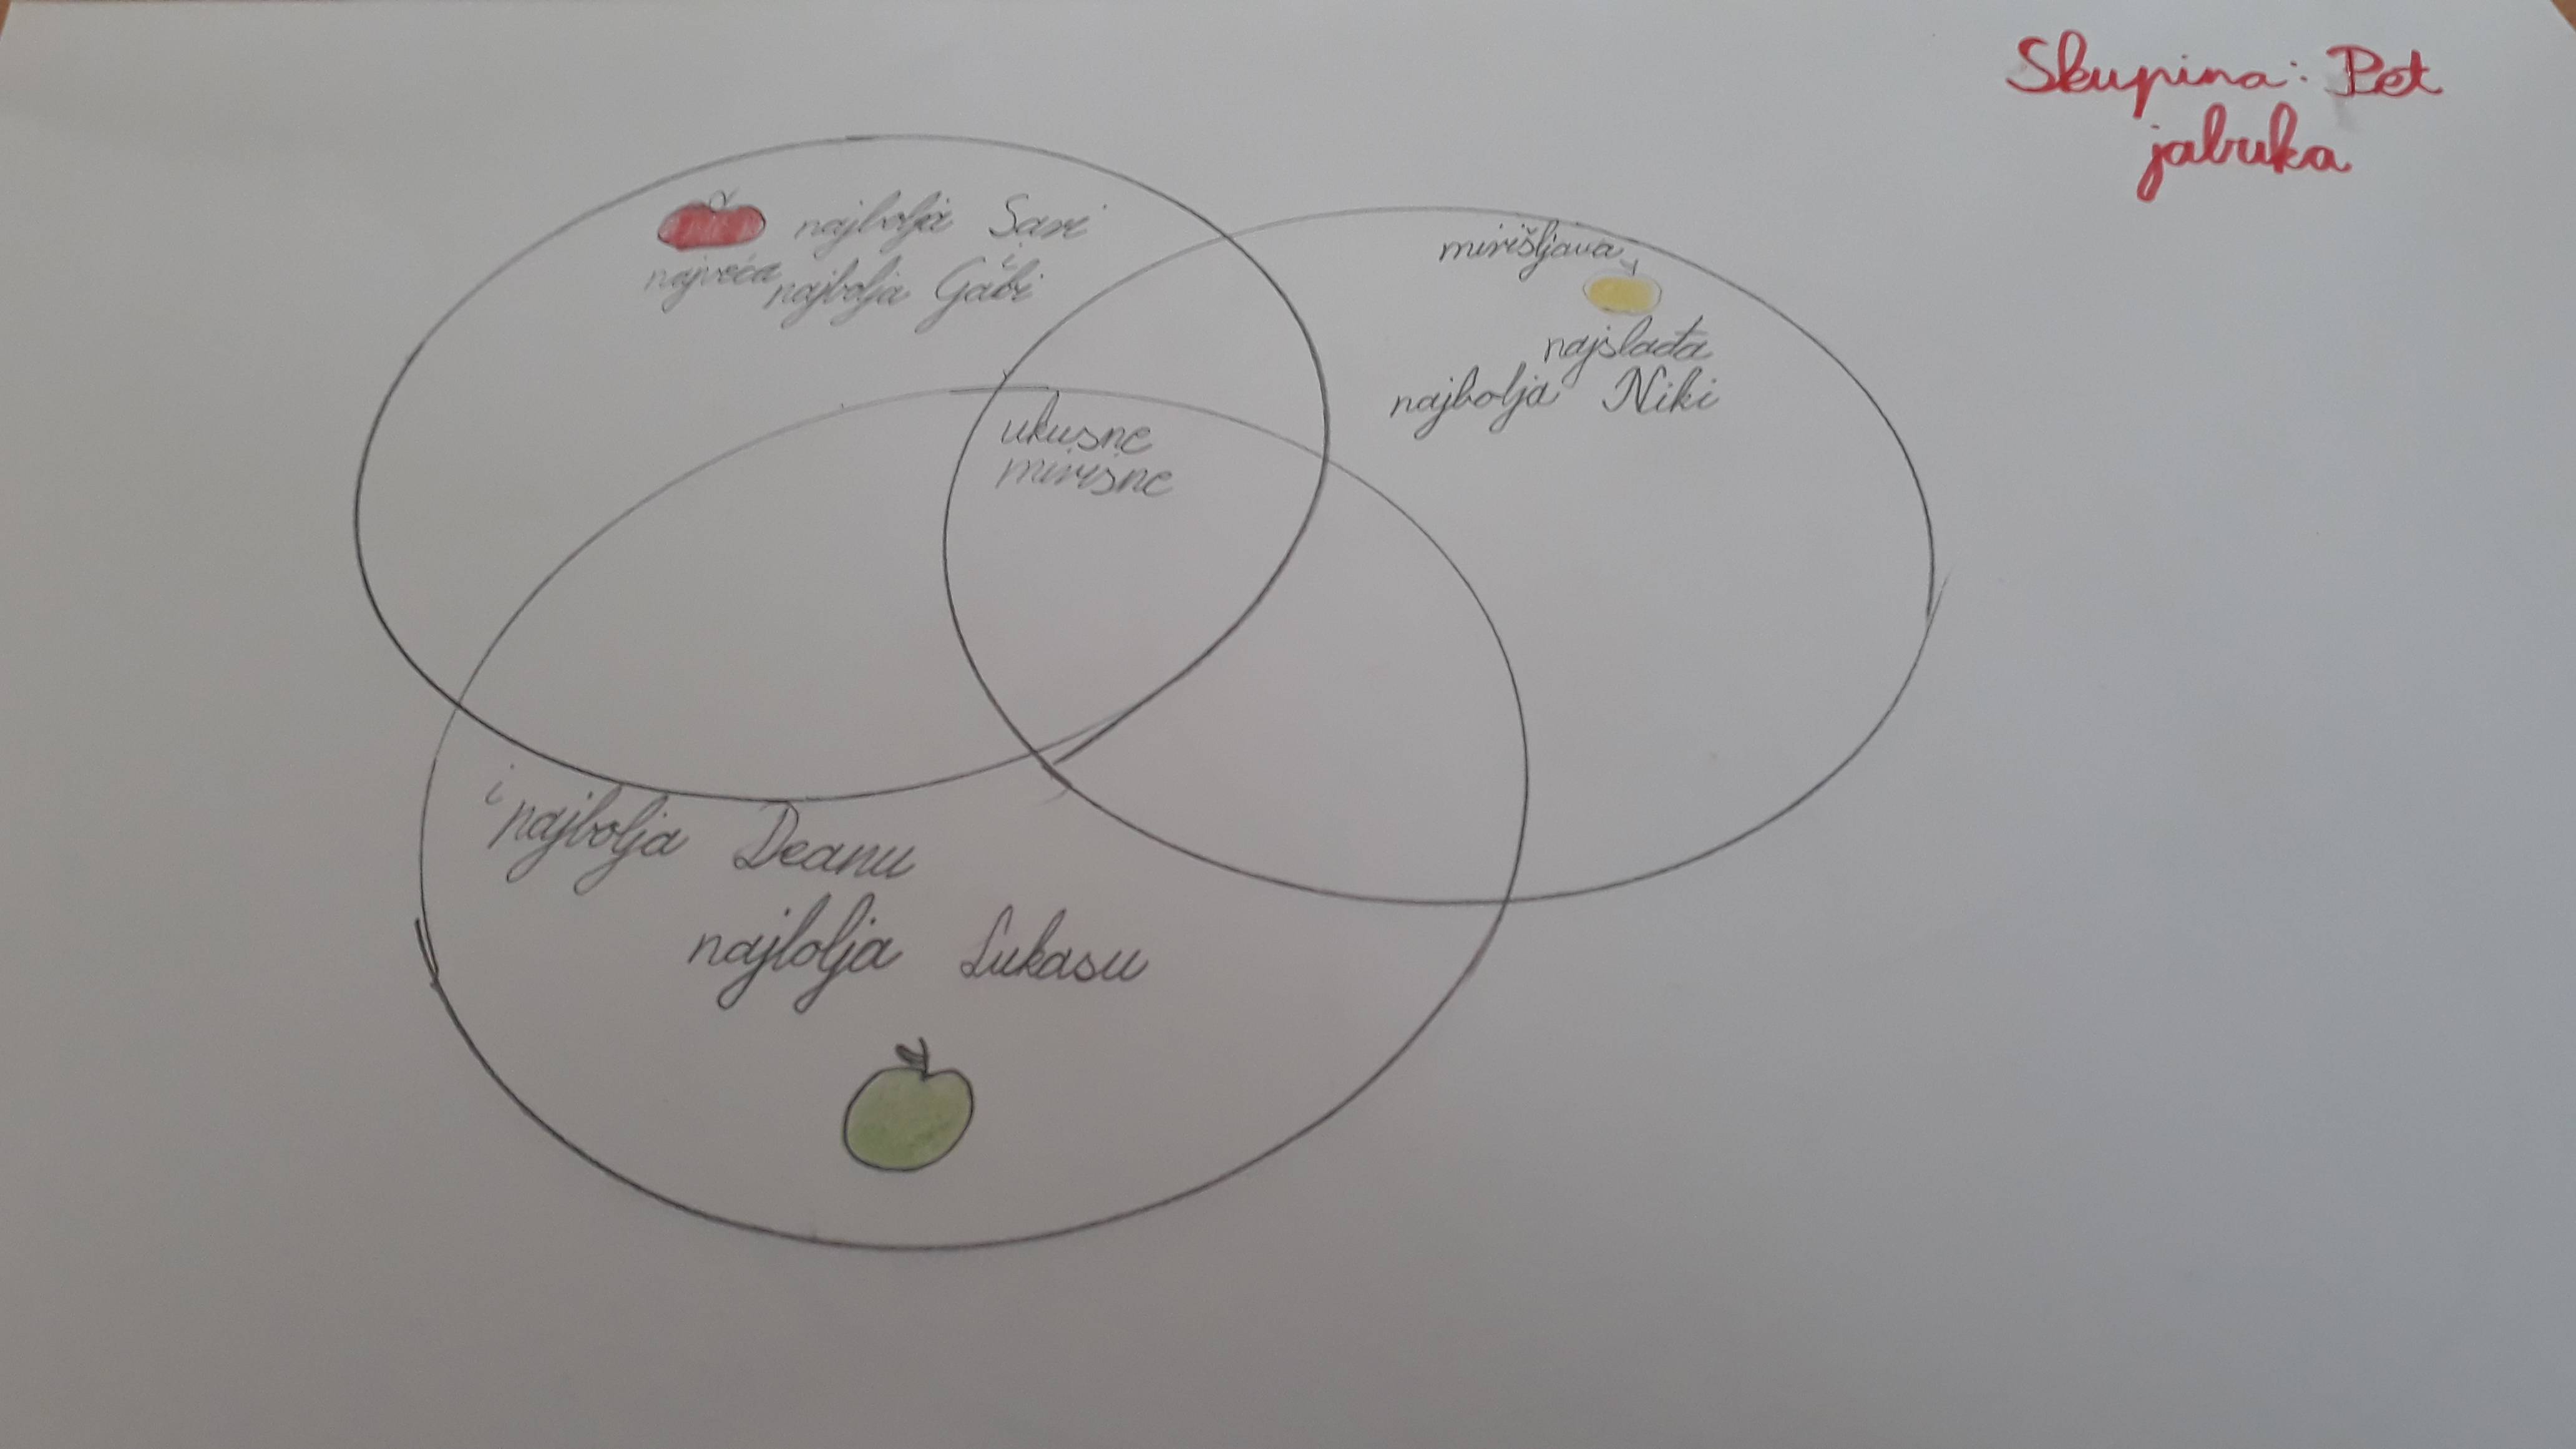 Skupina: Pet
jabuka
najbolja Sari
i
najveća najbolja Gabi
mirišljava
najslađa
najbolja Niki
ukusne
mirisne
i
najbolja Deanu
najlolja Lukasu